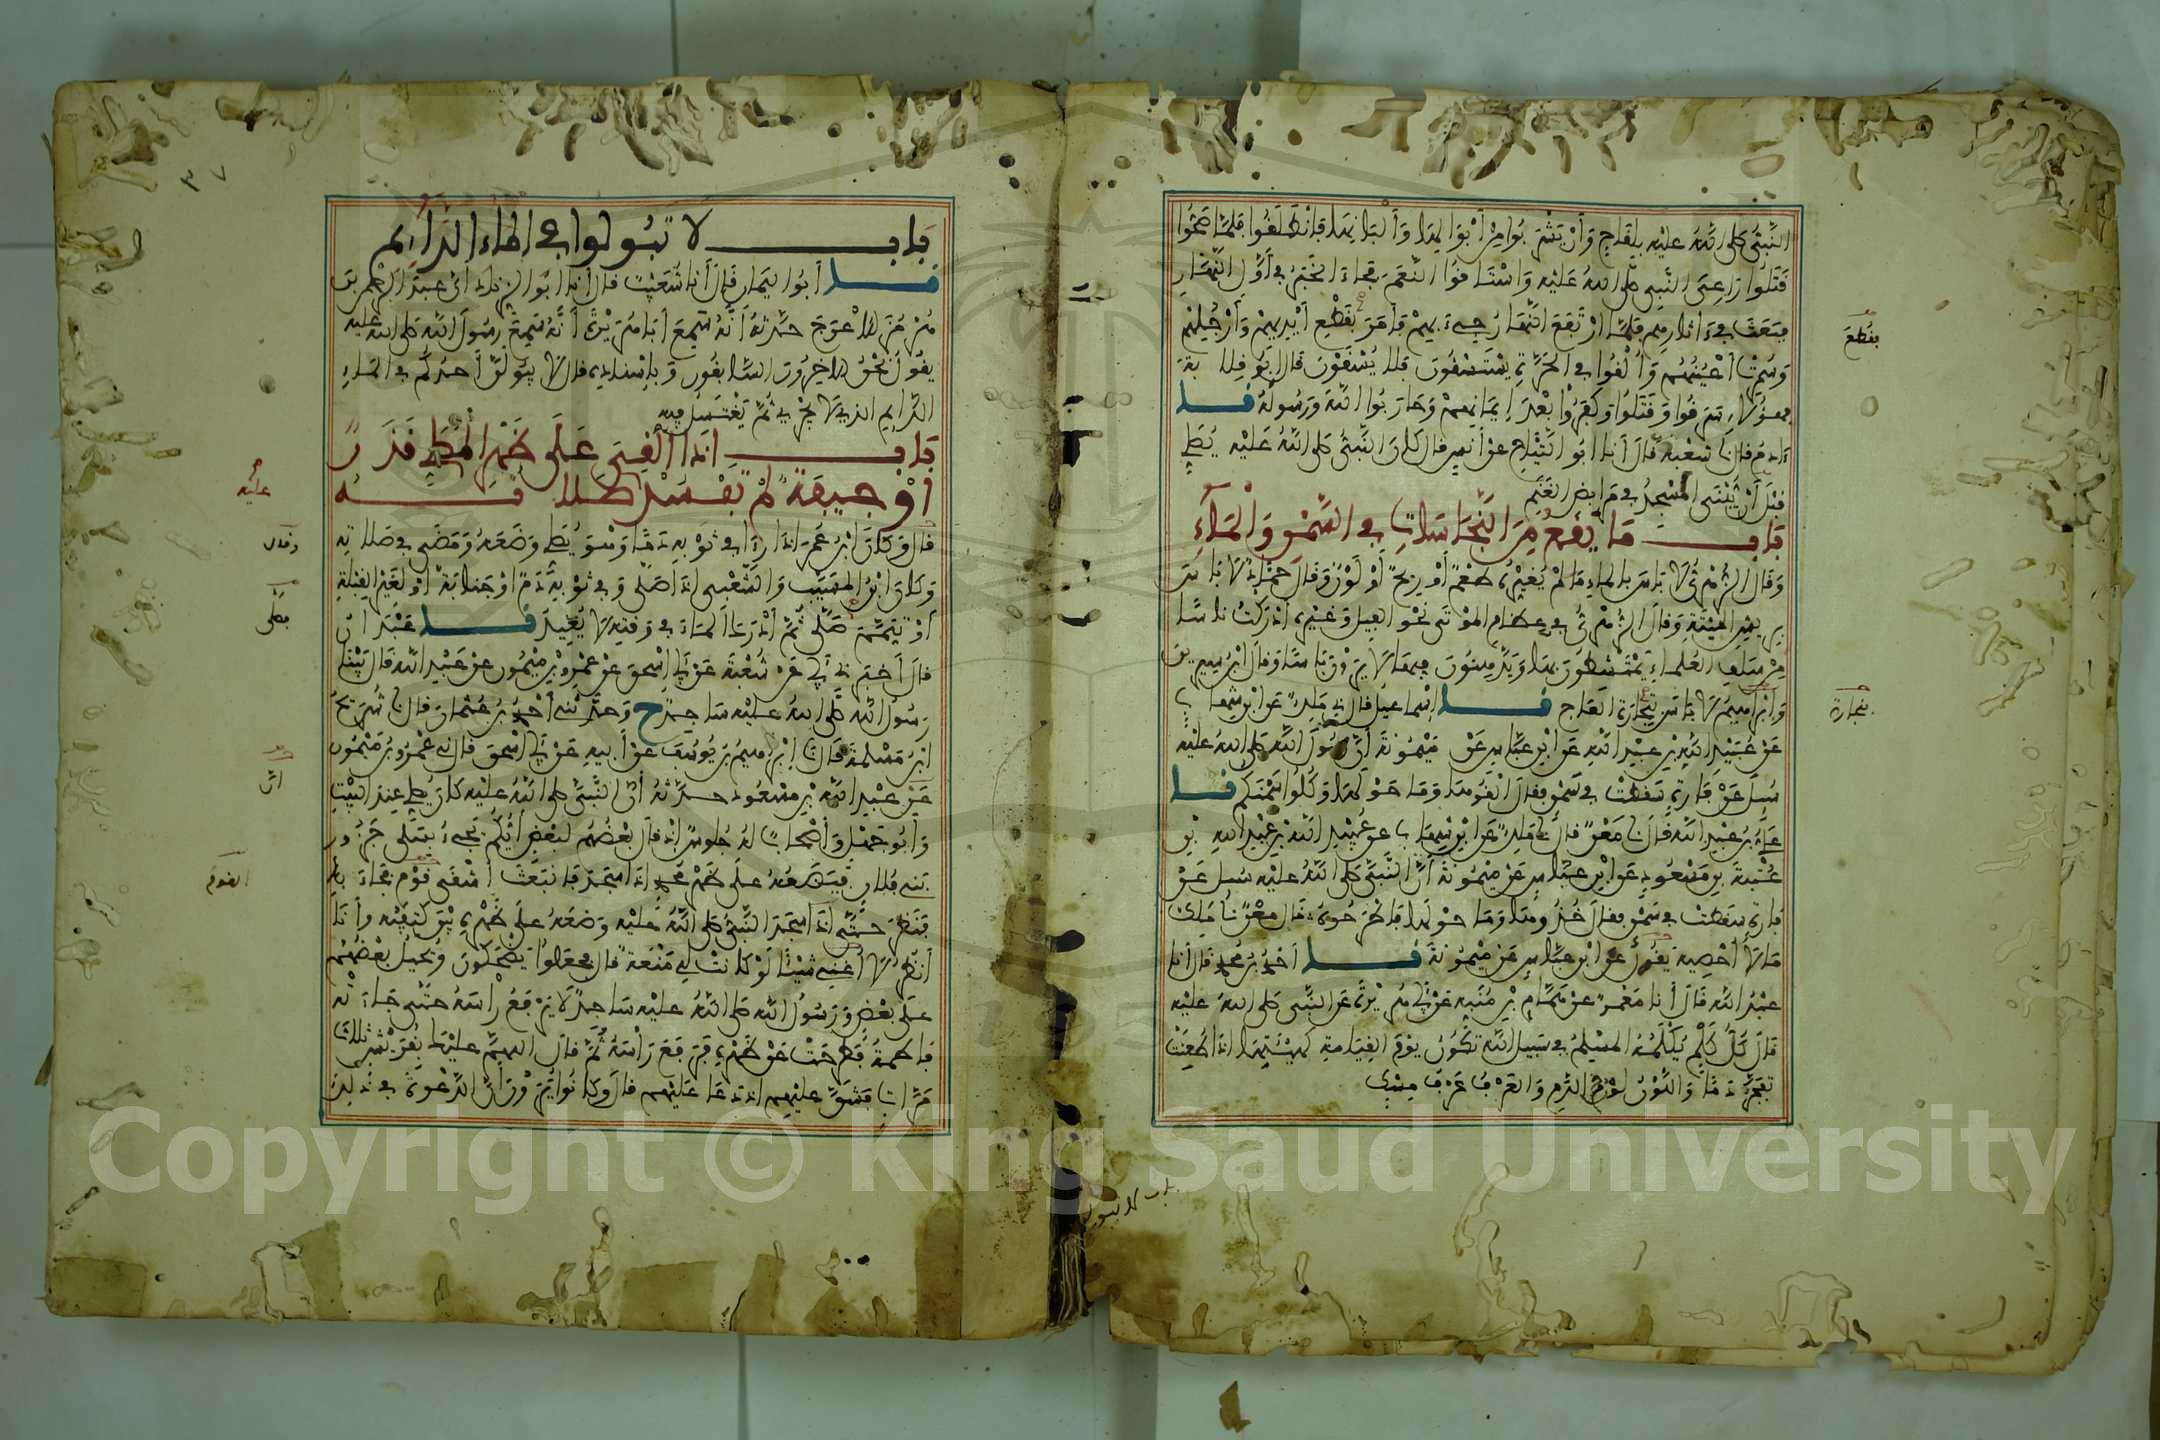 النبي صلى الله عليه بلقاح وأن يشربوا من أبوالها وألبانها فانطلقوا فلما صحوا
قتلوا راعي النبي صلى الله عليه واستاقوا النعم فجاء الخبر في أول النهار
فبعث في ءاثارهم فلما ارتفع النهار جيء بهم فأمر بقطع أيديهم وأرجلهم
وسمرت أعينهم وألقوا في الحرة يستسقون فلا يسقون قال أبو قلابة
فهؤلاء سرقوا وقتلوا وكفروا بعد إيمانهم وحاربوا الله ورسوله نا
ءادم قال نا شعبة قال أنا أبو التياح عن أنس قال كان النبي صلى الله عليه يصلي
قبل أن يبنى المسجد في مرابض الغنم
باب ما يقع من النجاسات في السمن والماء
وقال الزهري لا بأس بالماء ما لم يغيره طعم أو ريح أو لون وقال حماد لا بأس
بريش الميتة وقال الزهري في عظام الموتى نحو الفيل وغيره أدركت ناسا
من سلف العلماء يمتشطون بها ويدهنون فيها لا يرون بأسا وقال ابن سيرين
وإبراهيم لا بأس بتجارة العاج نا إسماعيل قال ني ملك عن ابن شهاب
عن عبيد الله بن عبد الله عن ابن عباس عن ميمونة أن رسول الله صلى الله عليه
سئل عن فارة سقطت في سمن فقال ألقوها وما حولها وكلوا سمنكم نا
علي بن عبد الله قال نا معن قال نا ملك عن ابن شهاب عن عبيد الله بن عبد الله بن
عتبة بن مسعود عن ابن عباس عن ميمونة أن النبي صلى الله عليه سئل عن
فارة سقطت في سمن فقال خذوها وما حولها فاطرحوه قال معن نا ملك
ما لا أحصيه يقول عن ابن عباس عن ميمونة نا أحمد بن محمد قال أنا
عبد الله قال أنا معمر عن همام بن منبه عن أبي هريرة عن النبي صلى الله عليه
قال كل كلم يكلمه المسلم في سبيل الله تكون يوم القيامة كهيئتها إذا طعنت
تفجر دما واللون لون الدم والعرف عرف مسك
بقطع
بتجارة
باب لا تبولوا
٣٧
باب لا تبولوا في الماء الدائم
نا أبو اليمان قال أنا شعيب قال أنا أبو الزناد أن عبد الرحمن بن
هرمز الأعرج حدثه أنه سمع أبا هريرة أنه سمع رسول الله صلى الله عليه
يقول نحن الآخرون السابقون وبإسناده قال لا يبولن أحدكم في الماء
الدائم الذي لا يجري ثم يغتسل فيه
باب إذا ألقي على ظهر المصلي قذر
أو جيفة لم تفسد صلاته
قال وكان ابن عمر إذا رءا في ثوبه دما وهو يصلي وضعه ومضى في صلاته
وكان ابن المسيب والشعبي إذا صلى وفي ثوبه دم أو جنابة أو لغير القبلة
أو تيمم صلى ثم أدرك الماء في وقته لا يعيد نا عبدان
قال أخبرني أبي عن شعبة عن أبي إسحق عن عمرو بن ميمون عن عبد الله قال بينا
رسول الله صلى الله عليه ساجد ح وحدثني أحمد بن عثمان قال نا شريح
ابن مسلمة قال نا إبراهيم بن يوسف عن أبيه عن أبي إسحق قال ني عمرو بن ميمون
عن عبد الله بن مسعود حدثه أن النبي صلى الله عليه كان يصلي عند البيت
وأبو جهل وأصحاب له جلوس إذ قال بعضهم لبعض أيكم يجيء بسلى جزور
بني فلان فيضعه على ظهر محمد إذا سجد فانبعث أشقى قوم فجاء به
فنظر حتى إذا سجد النبي صلى الله عليه وضعه على ظهره بين كتفيه وأنا
أنظر لا أغني شيئا لو كانت لي منعة قال فجعلوا يضحكون ويحيل بعضهم
على بعض ورسول الله صلى الله عليه ساجد لا يرفع رأسه حتى جاءته
فاطمة فطرحت عن ظهره فرفع رأسه ثم قال اللهم عليك بقريش ثلاث
مرات فشق عليهم إذ دعا عليهم قال وكانوا يرون أن الدعوة في ذلك
عليه
وقال
فصلى
أن
القوم
Copyright © King Saud University